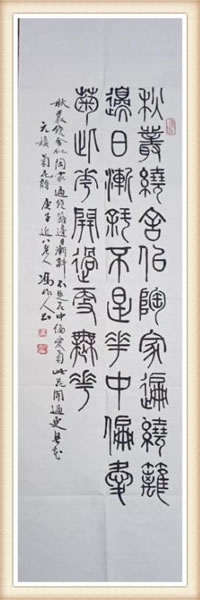 秋叢繞舍似陶家遍繞籬
邊日漸斜不是華中偏愛
菊此華開過更無華
秋叢繞舍似陶家遍繞籬邊日漸斜不是花中偏愛菊此花開過更無花
元稹菊花詩庚子近八人馮人书